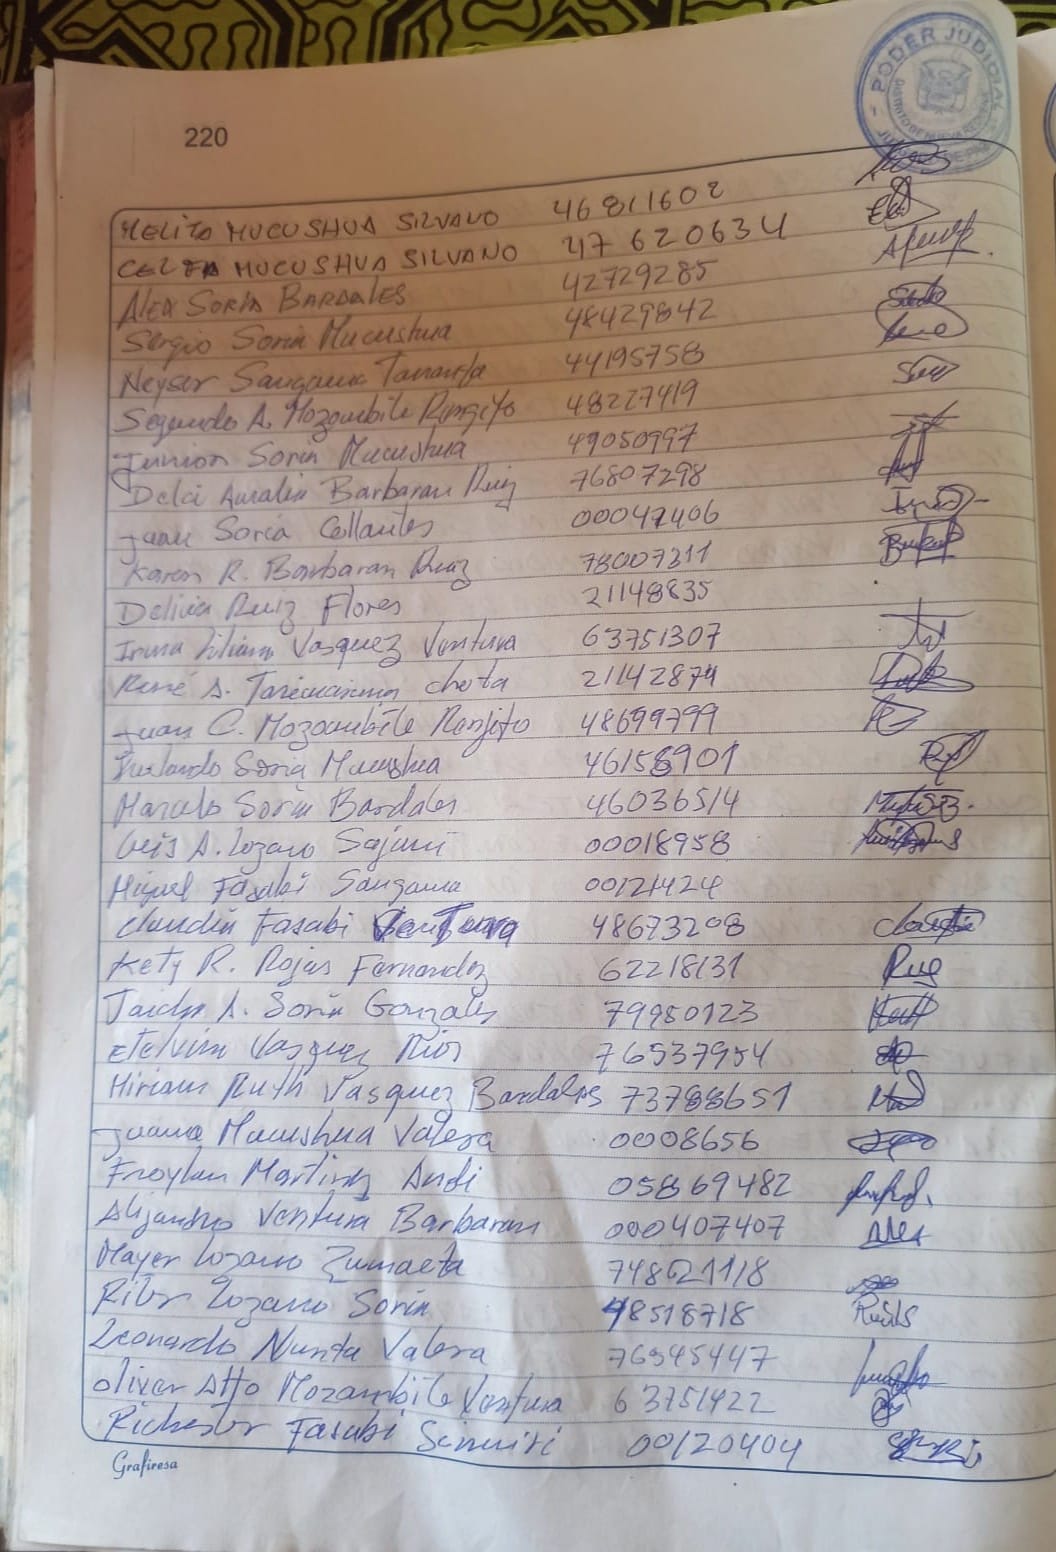 PODER JUDICIAL
220
MELITA MUCUSHUA SILVANO 46811602
CELIA MUCUSHUA SILVANO 47620634
Alex SORIA BARDALES 42729285
Sergio Soria Mucushua 48429842
Neyser Sangama Tananta 44195758
Segundo A. Mozombite Rengifo 48227419
Junior Soria Mucushua 49050997
Delci Auralia Barbaran Ruiz 76807298
Juan Soria Collantes 00047406
Karen R. Barbaran Ruiz 78007311
Delicia Ruiz Flores 21148835
Irma Liliana Vasquez Ventura 63751307
René A. Taricuarima Chota 21142874
Juan C. Mozombite Renjifo 48699799
Soria Mucushua 46158901
Marcelo Soria Bardales 46036514
Luis A. Lozano Sajami 00018958
Miguel Fasabi Sangama 00121424
Claudia Fasabi Ventura 48673208
Kety R. Rojas Fernandez 62218131
A. Soria Gonzales 79950123
Etelvina Vasquez Rios 76537954
Miriam Ruth Vasquez Bardales 73788651
Juana Mucushua Valera 0008656
Froylan Martinez Andi 05869482
Alijandro Ventura Barbaran 000407407
Mayer Lozano Zumaeta 748621118
Riter Lozano Soria 48518718
Leonardo Nunta Valera 76545447
Oliver Atto Mozombite Ventura 63751422
Richester Fasabi Sinuiri 00120404
Grafiresa